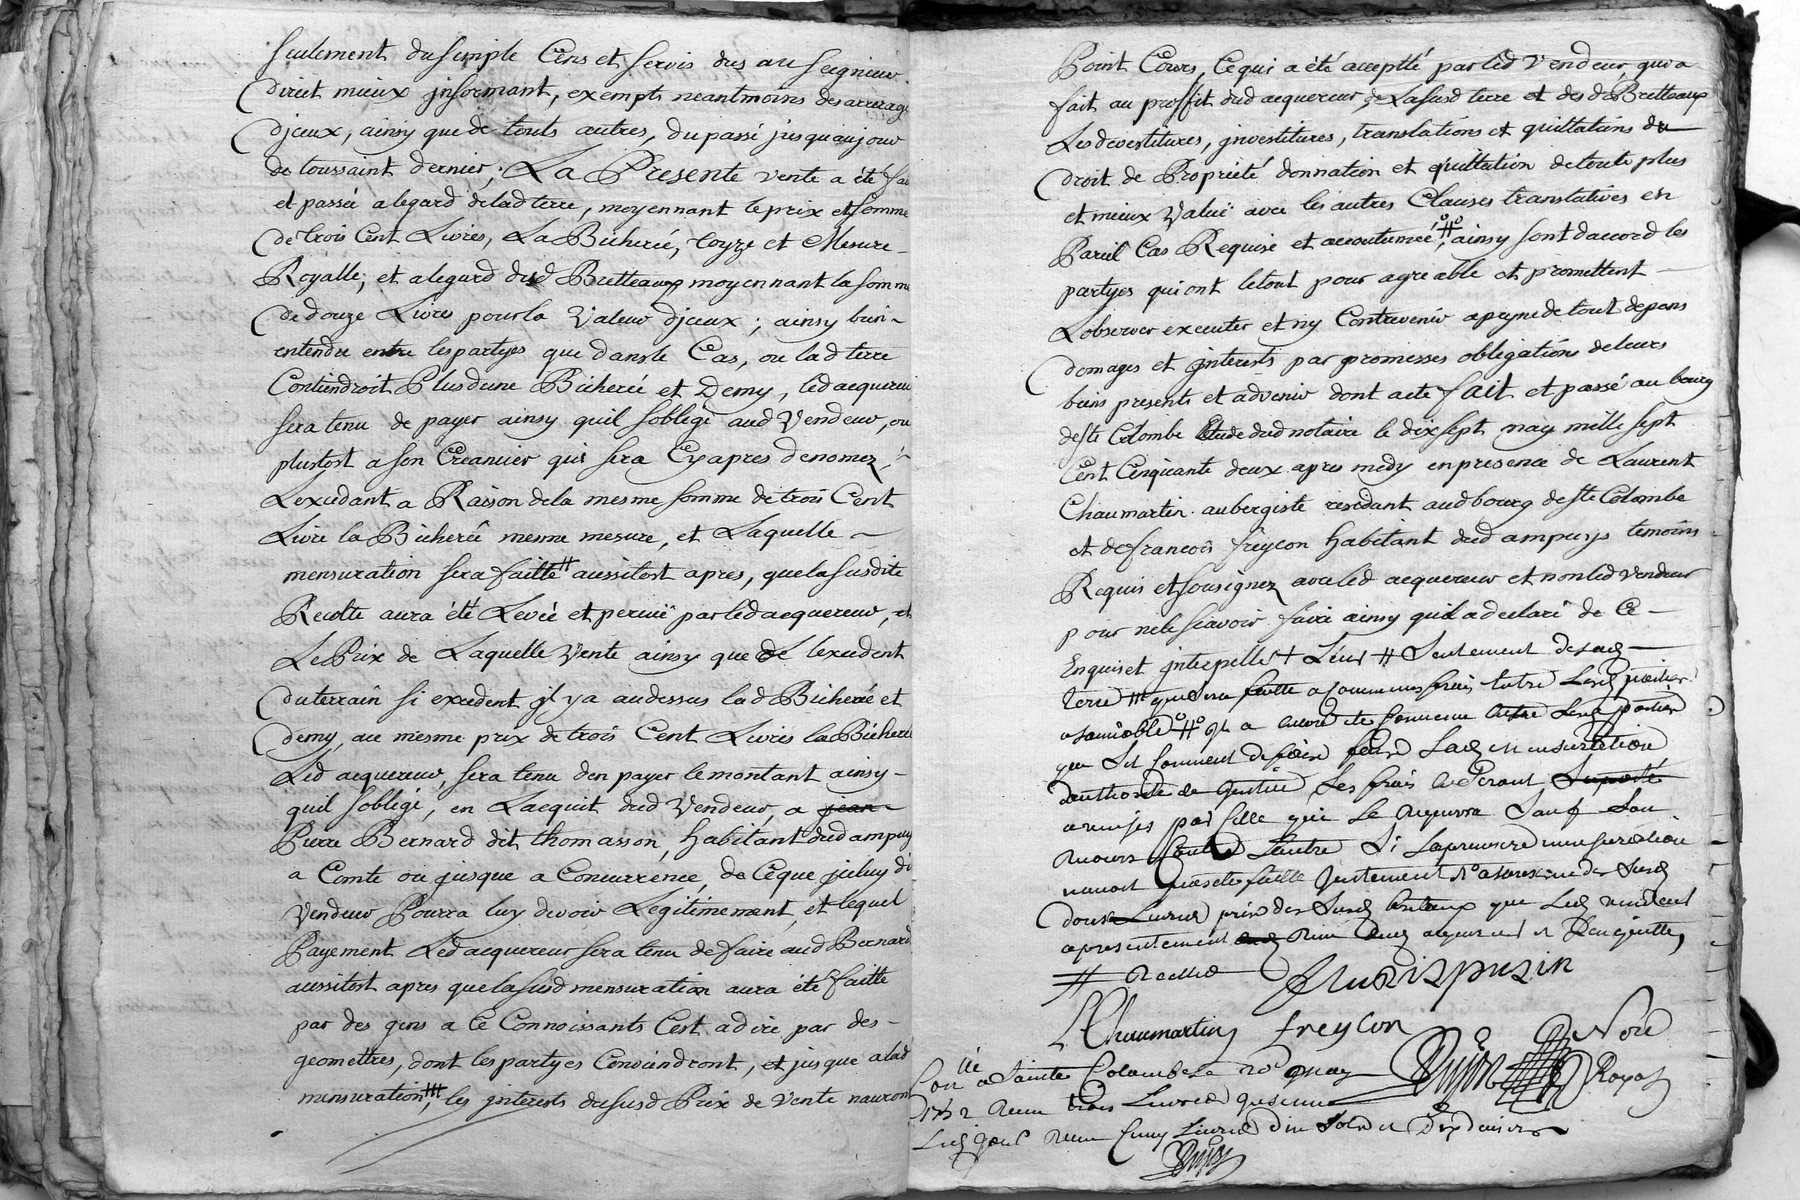 seulement du simple Cens et servis dus au seigneur
direct mieux jnformant, exempts neantmoins des arrerag
djceux, ainsy que de touts autres, du passé jusquaujour
de toussaint dernier; La Presente vente a été fai
et passée a legard delad terre, moyennant le prix et somme
de trois Cent Livres, La Bicherée, toyze et Mesure
Royalle; et alegard dusd Bretteaux moyennant la somme
de douze Livres pour la Valeur djceux; ainsy bien
entendu entre les partyes que dans le Cas, ou lad terre
Contiendroit Plus dune Bicherée et Demy, led acquereur
sera tenu de payer ainsy quil soblige aud Vendeur, ou
plustost a son Creancier qui sera Cyapres denomez,
Lexcedant a Raison dela mesme somme de trois Cent
Livre la Bicherée meme mesure, et Laquelle
mensuration sera faitte # aussitost apres, que la susdite
Recolte aura été Levée et percuë par led acquereur, et
Le Prix de Laquelle Vente ainsy que de lexcedent
du terrain si excedent jl y a au dessus lad Bicherée et
demy, au mesme prix de trois Cent Livres la Bicheré
Led acquereur, sera tenu den payer le montant ainsy
quil soblige, en Lacquit dud Vendeur, a jean
Pierre Bernard dit thomasson, habitant dud ampuy
a Comte ou jusque a Concurrence, de Ceque jceluy di
Vendeur Pourra luy devoir Legitimement, et lequel
Payement Led acquereur sera tenu de faire aud Bernard
aussitost apres que la susd mensuration aura été faitte
par des gens a Ce Connoissants Cest adire par des
geomettres, dont les partyes Conviendront, et jusque a lad
mensuration ###, les jnterests du susd Prix de Vente nauront
Point Cours, Ce qui a été accepté par led Vendeur, qui a
fait au proffit dud acquereur, de La susd terre et des d Bretteaux
Les devestitures, jnvestitures, translations et quittations du
droit de Propriété donnation et quittation de toute plus
et mieux Value avec les autres Clauses translatives en
Pareil Cas Requise et accoutumée #, ainsy sont daccord les
partyes qui ont le tout pour agreable et promettent
Lobserver executer et ny Contrevenir a peyne de tout depans
domages et jnterests par promesses obligations de leurs
biens presents et advenir dont acte fait et passé au bourg
de ste Colombe Etude dud notaire le dix sept may mille sept
Cent Cinquante deux apres midy en presence de Laurent
Chaumartin aubergiste residant aud bourg de ste Colombe
et de francois freycon habitant dud ampuys temoins
Requis et sousignez avec led acquereur et non led vendeur
pour ne le scavoir faire ainsy quil a declaré de Ce
Enquis et jnterpellé + # seulement de lad
terre ### que sera faitte a communs frais entre les parties
a lamiable # et a encore été convenu entre les parties
que sil convient de faire faire lad mensuration
dauthorité de justice les frais en seront suportés
par celle qui le requerra sauf son
recours contre lautre si la premiere mensuration
navoit pas été faitte justement
douse Livres prix des susd bretteaux que led vendeur
apresentement
# fleurispusin
L Chaumartin freycon
Dujon Nore
Royal
Con lé a Sainte Colombe le may
1752 Receu trois Livres quinse
Receu Cinq Livres un sols et dix deniers
Dujon